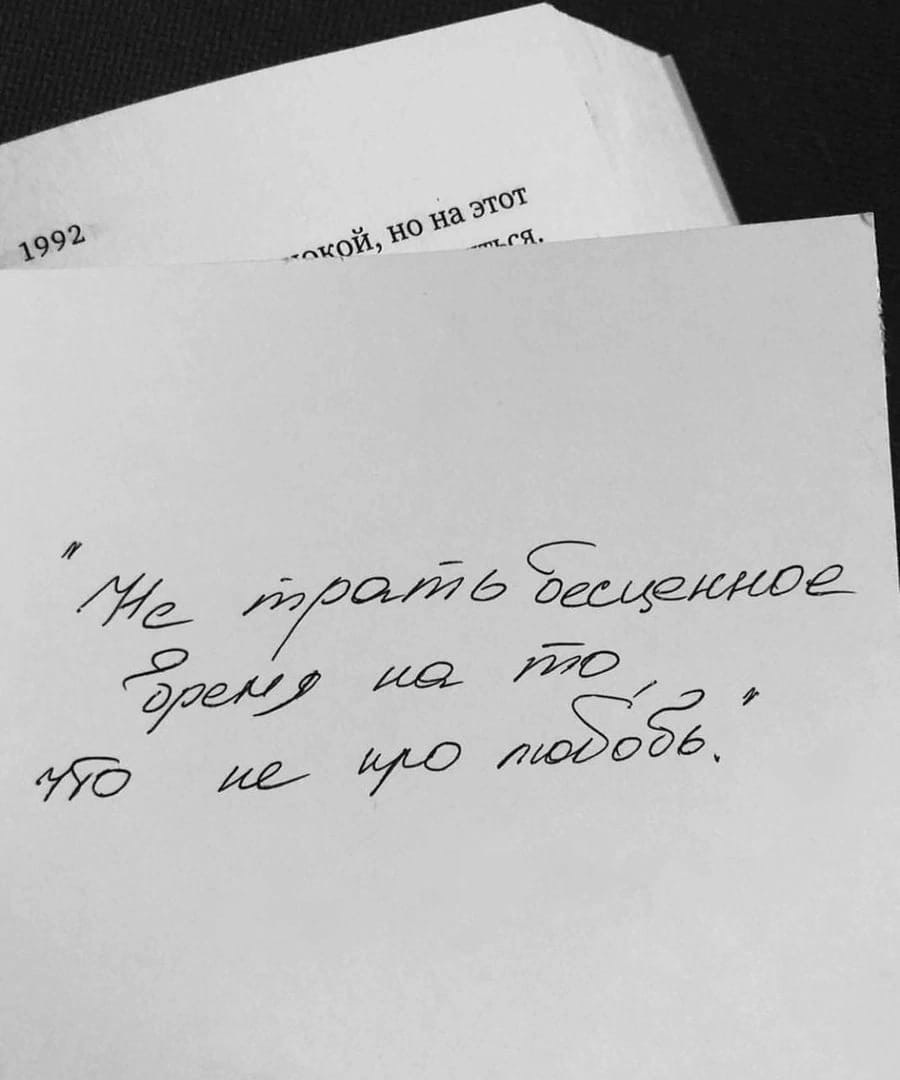 1992
но на этот
"Не трать бесценное
время на то,
что не про любовь."